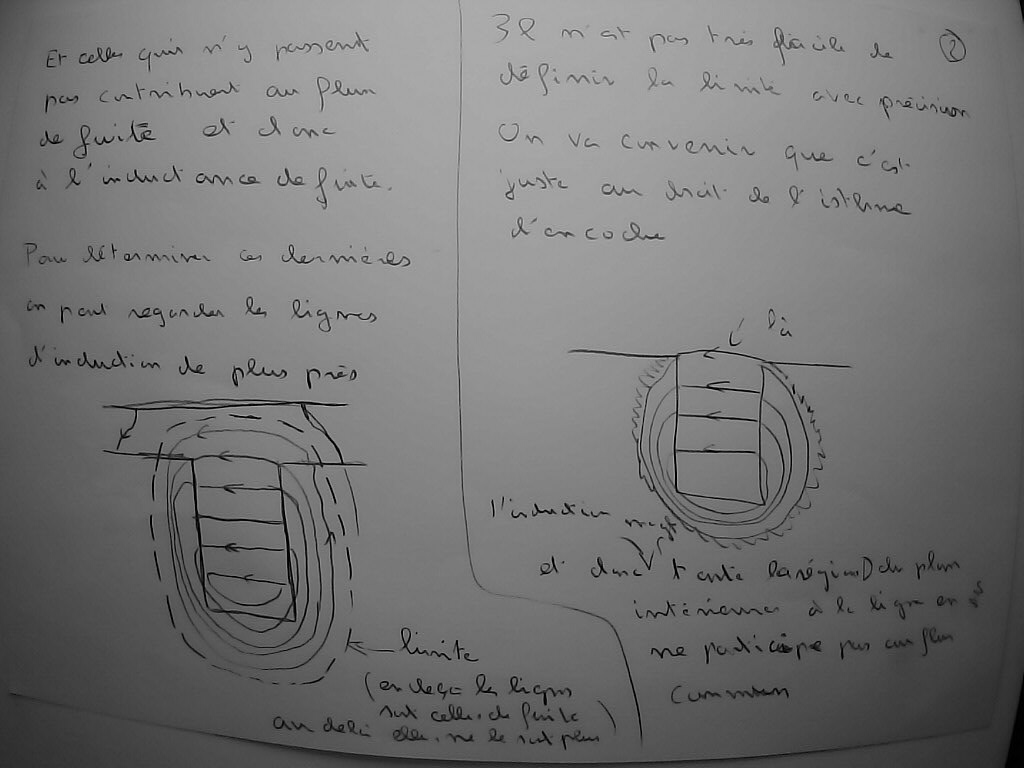 Et celles qui n'y passent
pas contribuent au flux
de fuite et donc
à l'inductance de fuite.
Pour déterminer ces dernières
on peut regarder les lignes
d'induction de plus près
limite
(en deça les lignes
sont celles de fuite
au delà elles ne le sont plus)
2
Il n'est pas très facile de
définir la limite avec précision
On va convenir que c'est
juste au droit de l'isthme
d'encoche
là
l'induction
et donc toute la région du plan
intérieure à la ligne en
ne participe pas au flux
commun